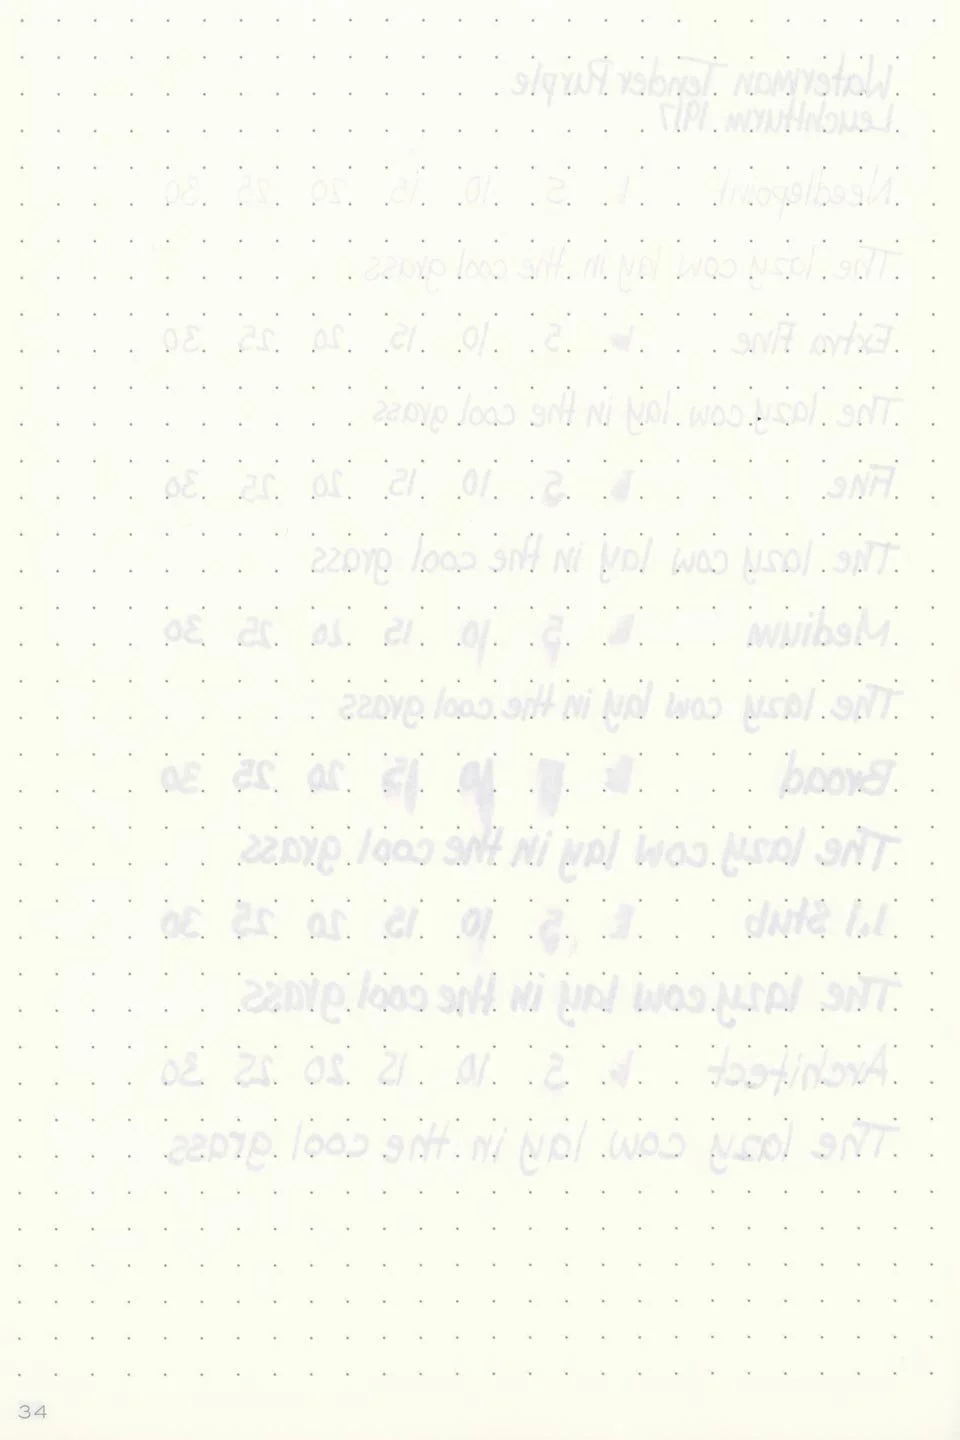 Waterman Tender Purple
Leuchtturm 1917
Needlepoint 1 5 10 15 20 25 30
The lazy cow lay in the cool grass
Extra Fine 5 10 15 20 25 30
The lazy cow lay in the cool grass
Fine 5 10 15 20 25 30
The lazy cow lay in the cool grass
Medium 5 10 15 20 25 30
The lazy cow lay in the cool grass
Broad 10 15 20 25 30
The lazy cow lay in the cool grass
1.1 Stub 5 10 15 20 25 30
The lazy cow lay in the cool grass
Architect 5 10 15 20 25 30
The lazy cow lay in the cool grass
34